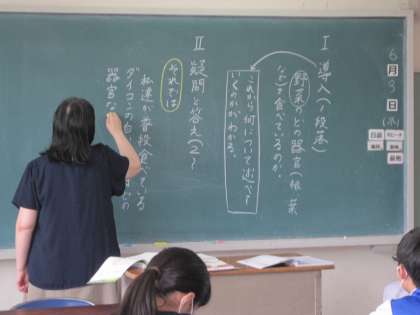 6月3日(水)
日直
Ⅰ 導入(1段落)
野菜のどの器官(根、葉
など)を食べているのか。
これから何について述べて
いくのかがわかる。
Ⅱ 疑問と答え(2〜
それでは
私達が普段食べている
ダイコンの白い
器官な